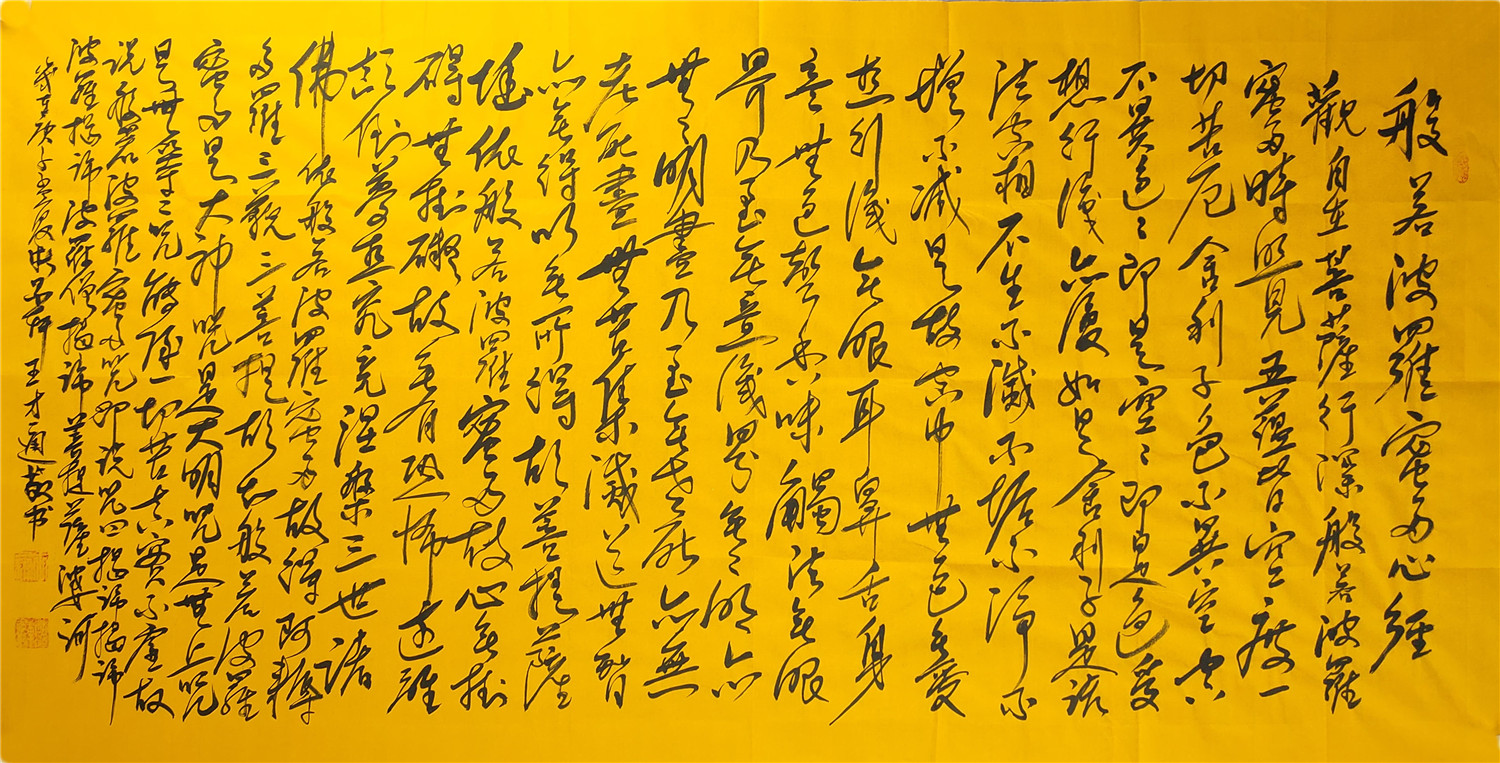 般若波羅蜜多心經
觀自在菩薩行深般若波羅
蜜多時照見五蘊皆空度一
切苦厄舍利子色不異空空
不異色〻即是空〻即是色受
想行識亦復如是舍利子是諸
法空相不生不滅不垢不淨不
增不減是故空中無色无受
想行識无眼耳鼻舌身
意無色聲香味觸法无眼
界乃至无意識界无〻明亦
無〻明盡乃至无老死亦無
老死盡無苦集滅道無智
亦无得以无所得故菩提薩
埵依般若波羅蜜多故心无掛
碍無掛礙故无有恐怖遠離
顛倒夢想究竟涅槃三世諸
佛依般若波羅蜜多故得阿耨
多羅三藐三菩提故知般若波羅
蜜多是大神咒是大明咒是無上咒
是無等〻咒能除一切苦真實不虛故
說般若波羅蜜多咒即說咒曰揭諦揭諦
波羅揭諦波羅僧揭諦菩提薩婆訶
歲在庚子王才通敬书